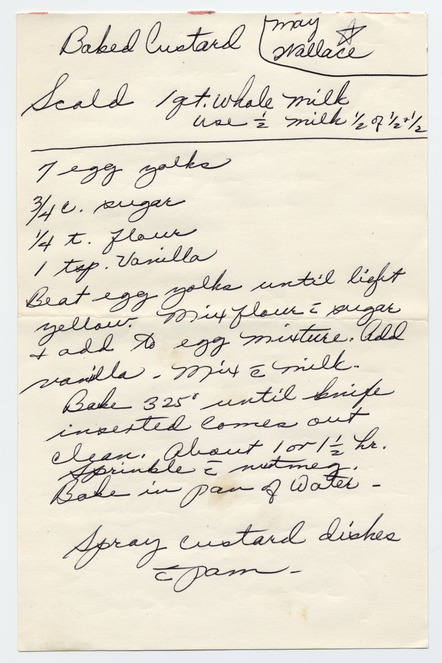 Baked Custard
May
Wallace
Scald 1 qt. whole milk
use ½ milk ½ of ½+½
7 egg yolks
¾ c. sugar
¼ t. flour
1 tsp. Vanilla
Beat egg yolks until light
yellow. Mix flour c̄ sugar
+ add to egg mixture. Add
vanilla. Mix c̄ milk.
Bake 325° until knife
inserted comes out
clean. About 1 or 1½ hr.
Sprinkle c̄ nutmeg.
Bake in pan of Water -
Spray custard dishes
c̄ pam -